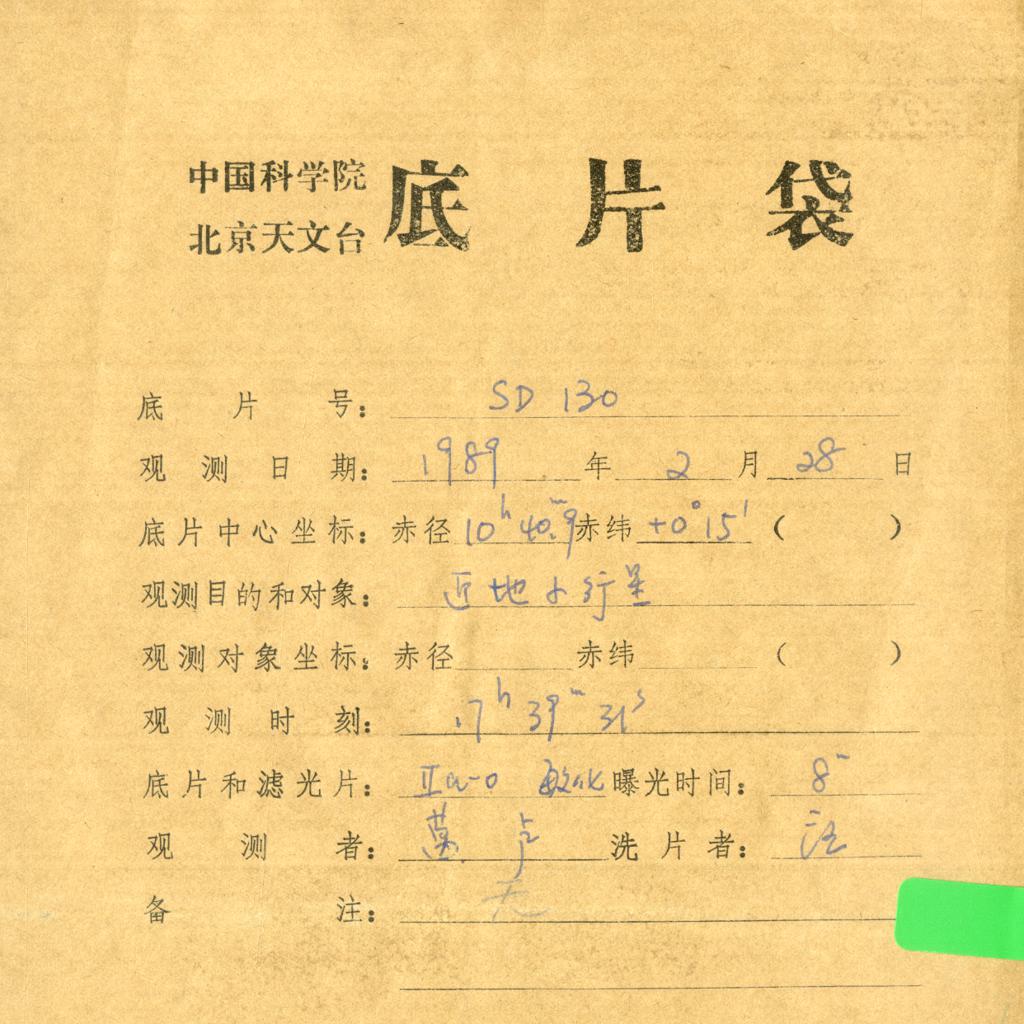 中国科学院
北京天文台
底片袋
底片号： SD 130
观测日期： 1989 年 2 月 28 日
底片中心坐标：赤径 10h 40m.9 赤纬 +0° 15′ （ ）
观测目的和对象： 近地小行星
观测对象坐标：赤径 赤纬 （ ）
观测时刻： 17h 39m 31s
底片和滤光片： IIa-O 敏化 曝光时间： 8m
观测者： 卢 洗片者： 汪
备注： 无